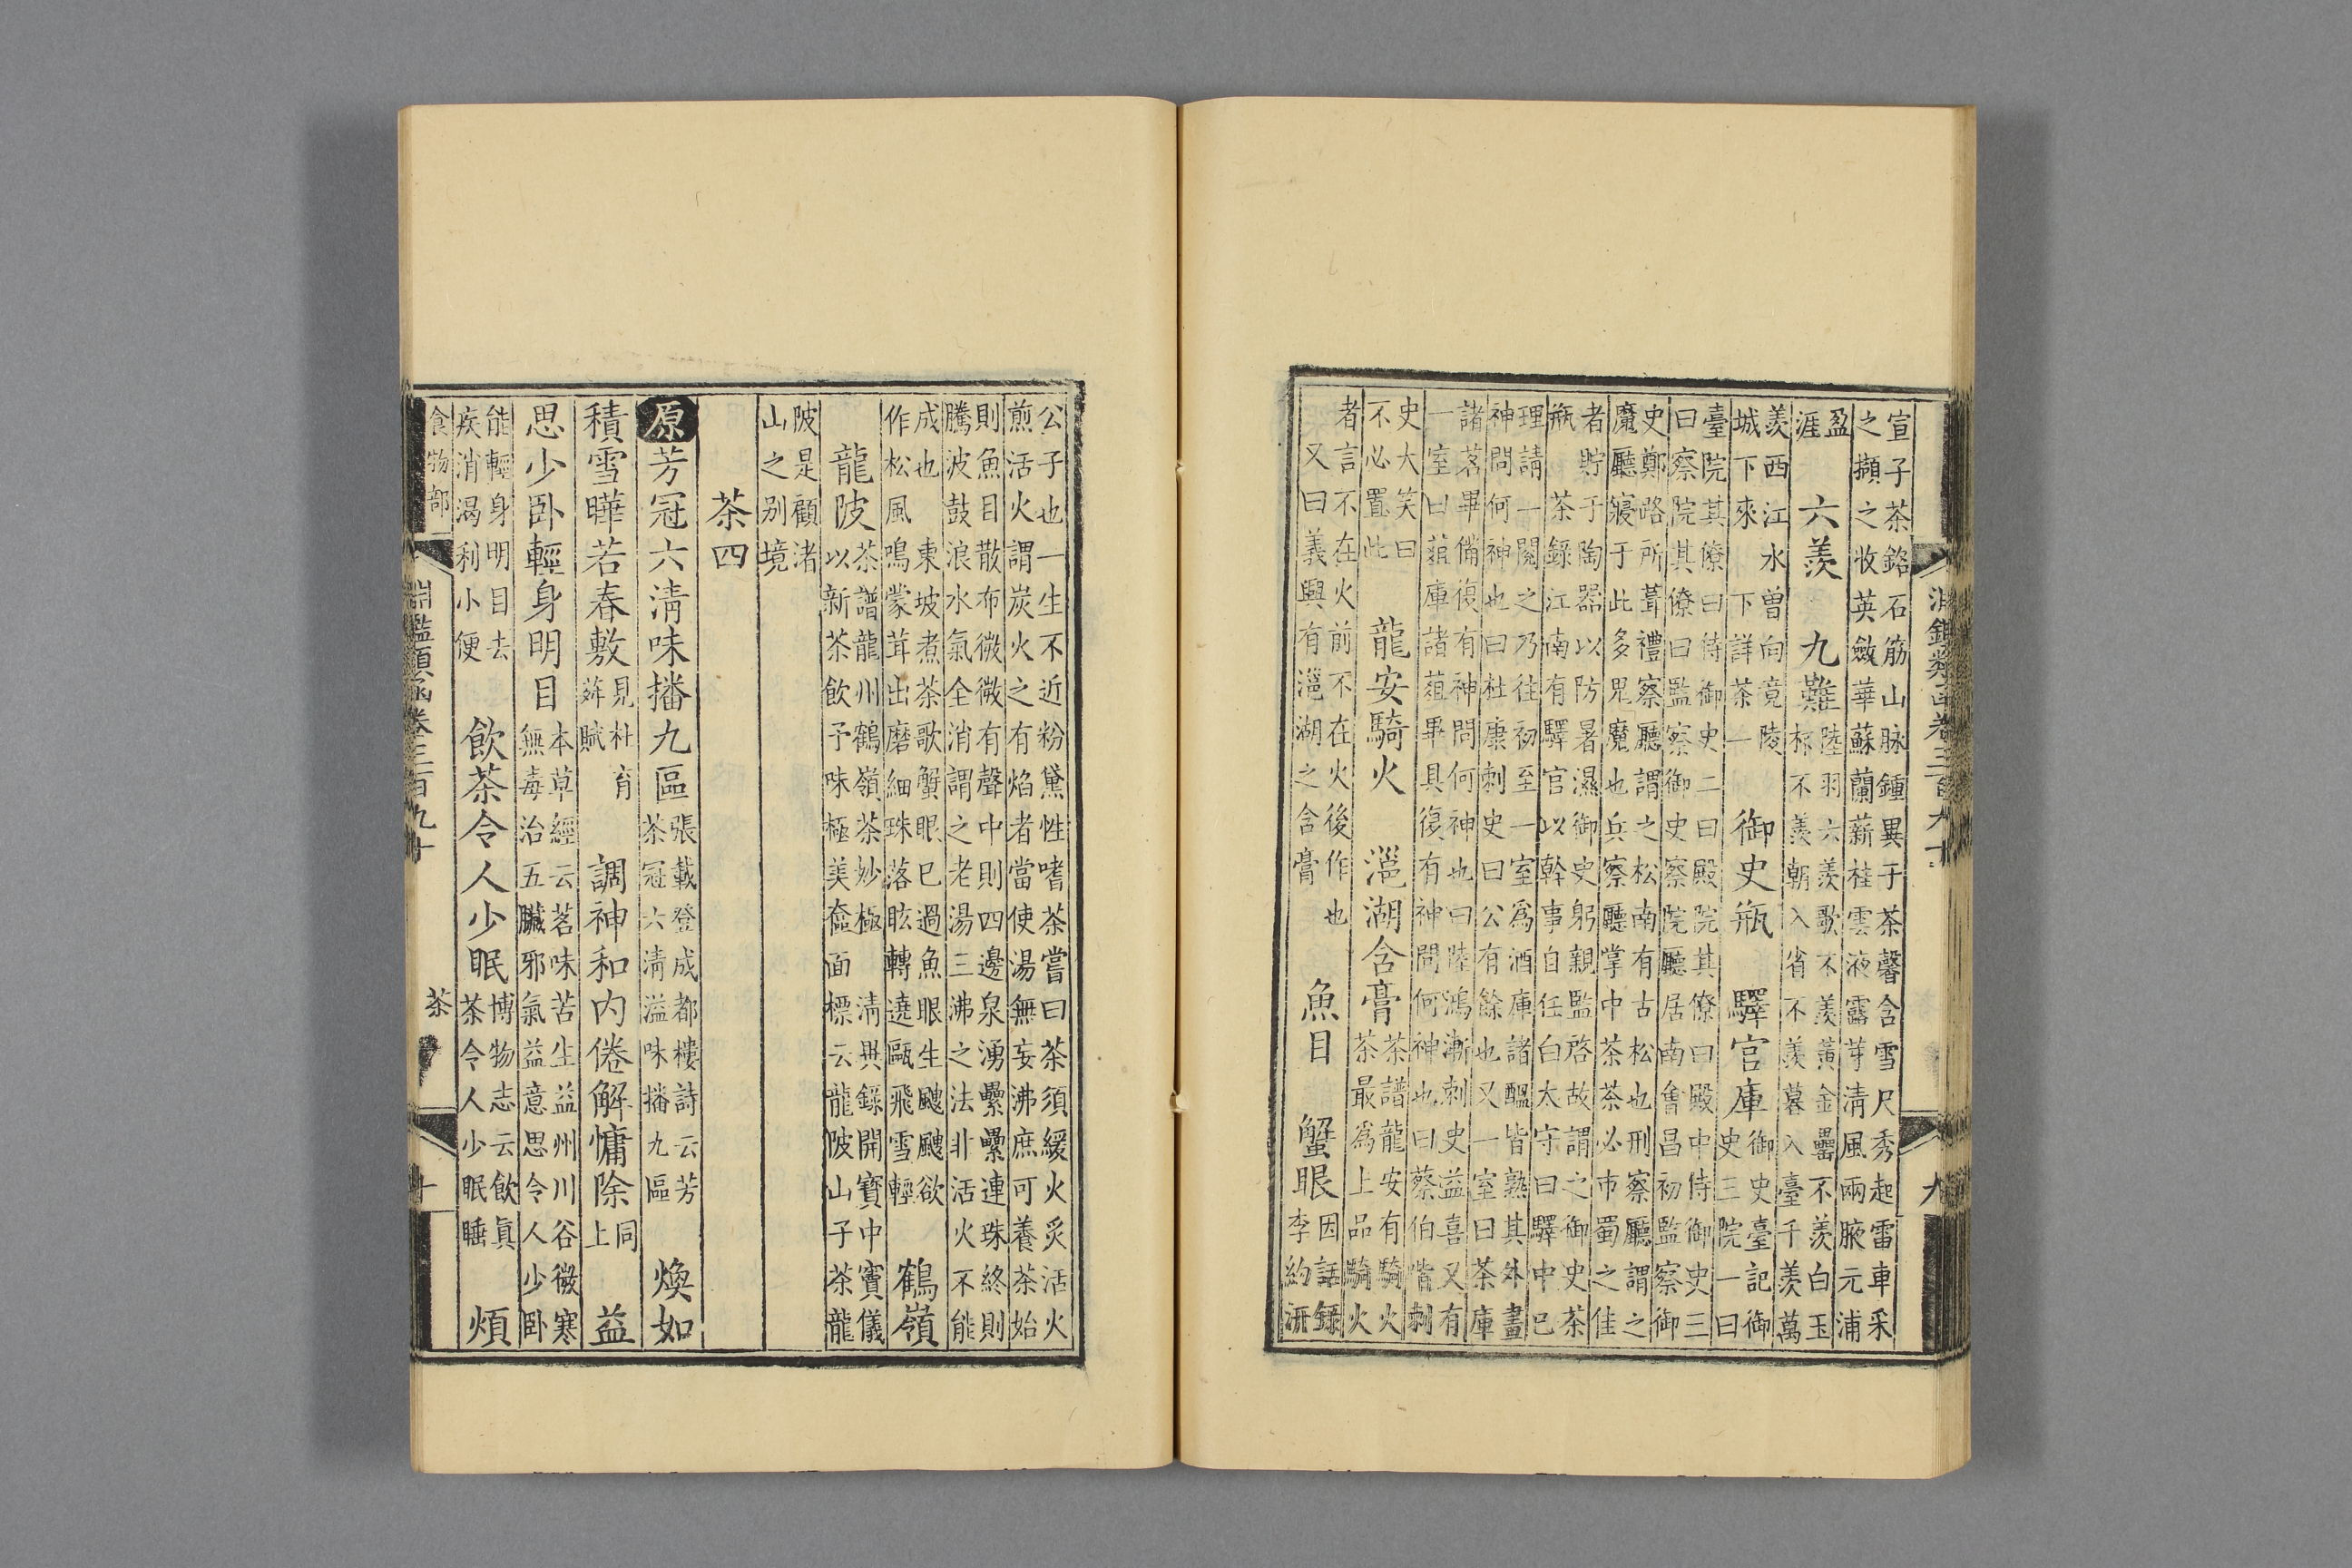 淵鑑類函卷三百九十
九
宣子茶銘石筋山脉鍾異于茶馨含雪尺秀起雷車采
之擷之收英斂華蘇蘭薪桂雲液露芽清風兩腋元浦
盈
涯
六羨　九難
陸羽六羨歌不羨黃金罍不羨白玉
杯不羨朝入省不羨暮入臺千羨萬
羨西江水曾向竟陵
城下來　下詳茶一
御史瓶　驛官庫
御史臺記御
史三院一曰
臺院其僚曰侍御史二曰殿院其僚曰殿中侍御史三
曰察院其僚曰監察御史察院廳居南會昌初監察御
史鄭路所葺禮察廳謂之松南有古松也刑察廳謂之
魔廳寢于此多鬼魔也兵察廳掌中茶茶必市蜀之佳
者貯于陶器以防暑濕御史躬親監啓故謂之御史茶
瓶　茶錄江南有驛官以幹事自任白太守曰驛中已
理請一閱之乃往初至一室爲酒庫諸醞皆熟其外畫
神問何神也曰杜康刺史曰公有餘也又一室曰茶庫
諸茗畢備復有神問何神也曰陸鴻漸刺史益喜又有
一室曰葅庫諸葅畢具復有神問何神也曰蔡伯喈刺
史大笑曰
不必置此
龍安騎火　㴩湖含膏
茶譜龍安有騎火
茶最爲上品騎火
者言不在火前不在火後作也
又曰義興有㴩湖之含膏
魚目　蟹眼
因話錄
李約汧
公子也一生不近粉黛性嗜茶嘗曰茶須緩火炙活火
煎活火謂炭火之有焰者當使湯無妄沸庶可養茶始
則魚目散布微微有聲中則四邊泉湧纍纍連珠終則
騰波鼓浪水氣全消謂之老湯三沸之法非活火不能
成也　東坡煮茶歌蟹眼已過魚眼生颼颼欲
作松風鳴蒙茸出磨細珠落眩轉遶甌飛雪輕
鶴嶺
龍陂
茶譜龍州鶴嶺茶妙極　清異錄開寶中竇儀
以新茶飲予味極美奩面標云龍陂山子茶龍
陂是顧渚
山之别境
茶四
原芳冠六淸味播九區
張載登成都樓詩云芳
茶冠六淸溢味播九區
煥如
積雪曄若春敷
見杜育
荈賦
調神和内倦解慵除
同
上
益
思少卧輕身明目
本草經云茗味苦生益州川谷微寒
無毒治五臟邪氣益意思令人少卧
能輕身明目去
疾消渴利小便
飲茶令人少眠
博物志云飲眞
茶令人少眠睡
煩
食物部
淵鑑類函卷三百九十
茶
十